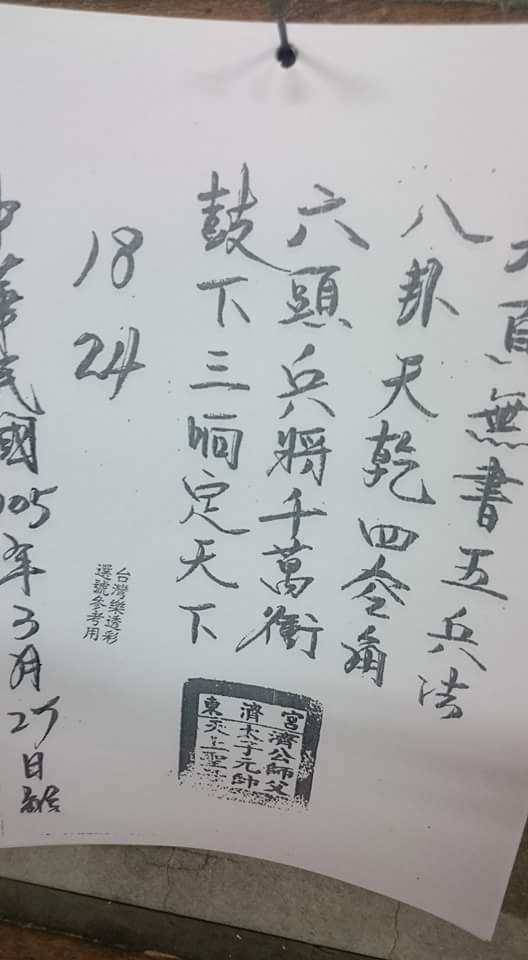 頁無書五兵法
八卦天乾四金角
六頭兵將千萬衝
鼓下三响定天下
18
24
台灣樂透彩
選號參考用
中華民國105年3月27日
宮濟東
濟公師父
太子元帥
天上聖